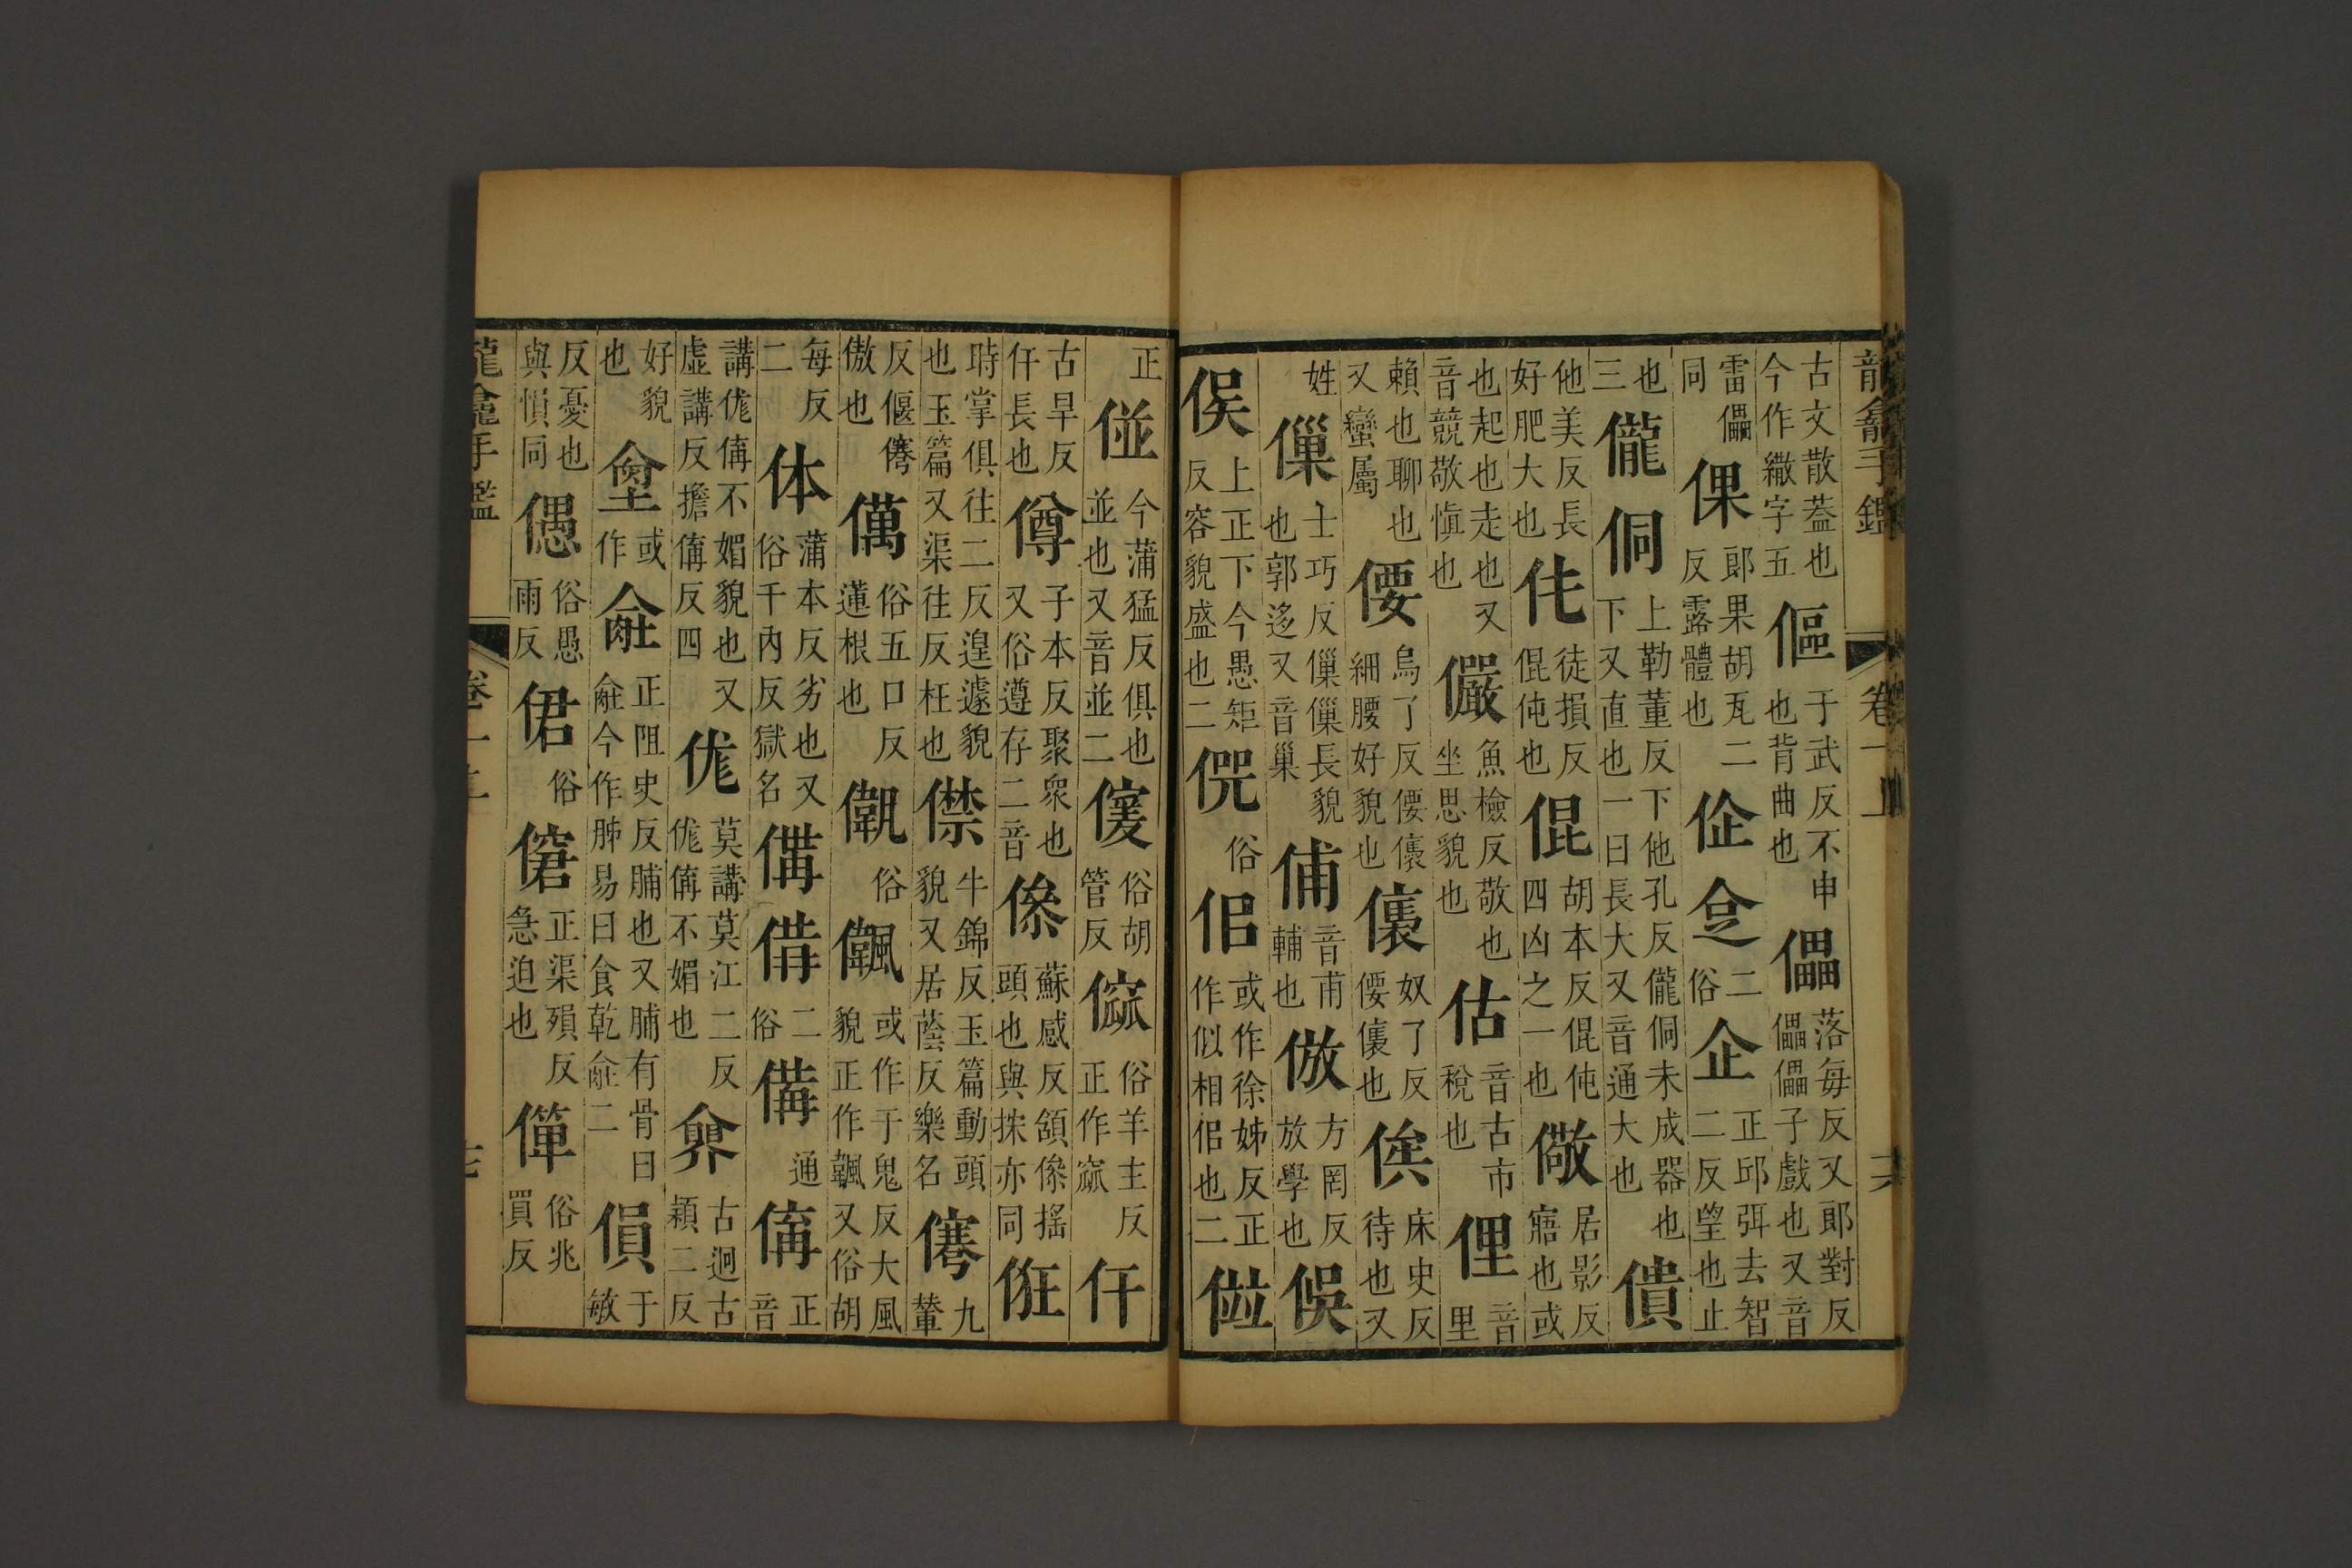 龍龕手鑑 卷一上 十六
古文散葢也今作繖字五 傴 于武反不申也背曲也 儡 落每反又郎對反儡儡子戲也又音
雷儡同 倮 郎果胡瓦二反露體也二俗 企 正邱弭去智二反望也止
也三 儱侗 上勒董反下他孔反儱侗未成器也下又直也一曰長大又音通大也 僓
他美反長好肥大也 伅 徒損反倱伅也 倱 胡本反倱伅四凶之一也 儆 居影反寤也或
也起也走也又音競敬慎也 儼 魚檢反敬也坐思貌也 估 音古市稅也 俚 音里
賴也聊也又蠻屬 偠 烏了反偠㒟細腰好貌也 㒟 奴了反偠㒟也 俟 床史反待也又
姓 僺 士巧反僺僺長貌也郭迻又音巢 俌 音甫輔也 倣 方罔反放學也 俁
俣 上正下今愚矩反容貌盛也二 俗 佀 或作徐姊反正作似相佀也二
正 傡 今蒲猛反俱也並也又音並二 俗胡管反 俗羊主反正作窳 仠
古旱反仠長也 僔 子本反聚衆也又俗遵存二音 傪 蘇感反頷傪搖頭也與亦同 俇
時掌俱往二反遑遽貌也玉篇又渠往反枉也 僸 牛錦反玉篇動頭貌又居蔭反樂名 九輦
反偃傲也 俗五口反蓮根也 俗 或作于鬼反大風貌正作颹又俗胡
每反二 体 蒲本反劣也又俗千內反獄名 二俗 通 傋 正音
講㑻傋不媚貌也又虛講反擔傋反四 㑻 莫講莫江二反㑻傋不媚也 古迥古穎二反
好貌也 或作 正阻史反脯也又脯有骨曰今作胏易曰食乾二 于敏
反憂也與愪同 俗愚雨反 俗 正渠殞反急迫也 俗兆買反
龍龕手鑑 卷一上